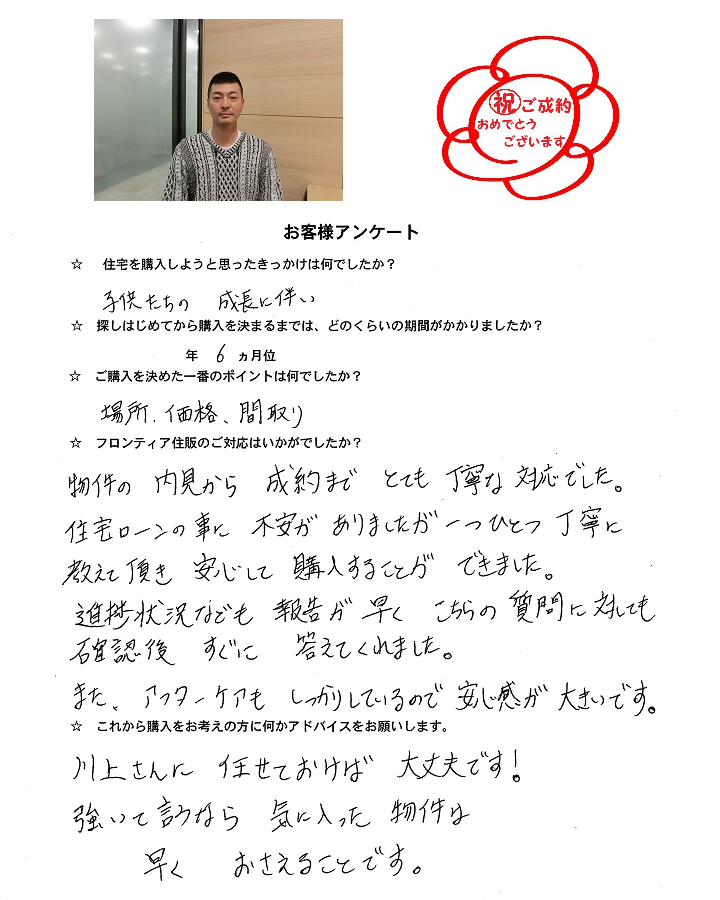 祝ご成約
おめでとう
ございます
お客様アンケート
☆ 住宅を購入しようと思ったきっかけは何でしたか？
子供たちの 成長に伴い
☆ 探しはじめてから購入を決まるまでは、どのくらいの期間がかかりましたか？
年 6 ヵ月位
☆ ご購入を決めた一番のポイントは何でしたか？
場所、価格、間取り
☆ フロンティア住販のご対応はいかがでしたか？
物件の 内見から 成約まで とても 丁寧な 対応でした。
住宅ローンの事に 不安が ありましたが 一つひとつ 丁寧に
教えて頂き 安心して 購入することが できました。
進捗状況なども 報告が 早く こちらの 質問に対しても
確認後 すぐに 答えてくれました。
また、アフターケアも しっかりしているので 安心感が 大きいです。
☆ これから購入をお考えの方に何かアドバイスをお願いします。
川上さんに 任せておけば 大丈夫です！
強いて言うなら 気に入った 物件は
早く おさえることです。